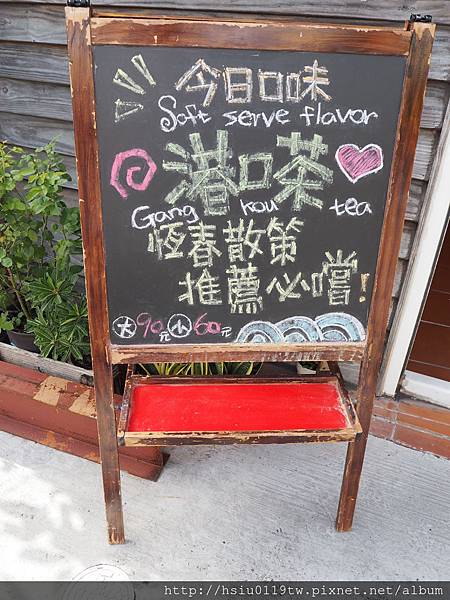 今日口味
Soft serve flavor
港口茶
Gang kou tea
恆春散策
推薦必嚐!
大90元 小60元
http://hsiu0119tw.pixnet.net/album